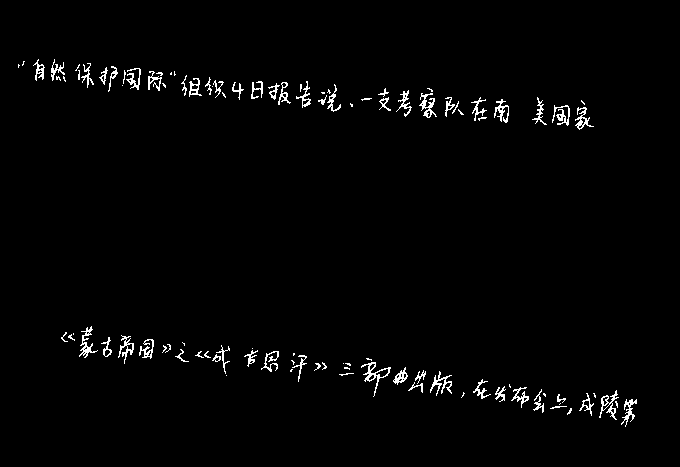 “自然保护国际”组织4日报告说、一支考察队在南美国家
《蒙古帝国》之《成吉思汗》三部曲出版,在发布会上,成陵第